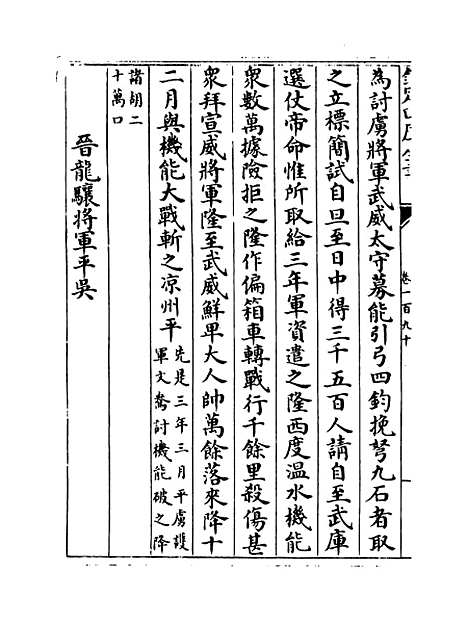 卷一百九十
為討虜將軍武威太守募能引弓四鈞挽弩九石者取
之立標簡試自旦至日中得三千五百人請自至武庫
選仗帝命惟所取給三年軍資遣之隆西度溫水機能
衆數萬據險拒之隆作偏箱車轉戰行千餘里殺傷甚
衆拜宣威將軍隆至武威鮮卑大人帥萬餘落來降十
二月與機能大戰斬之凉州平
先是三年三月平虜護
軍文鴦討機能破之降
諸胡二
十萬口
晉龍驤將軍平吳